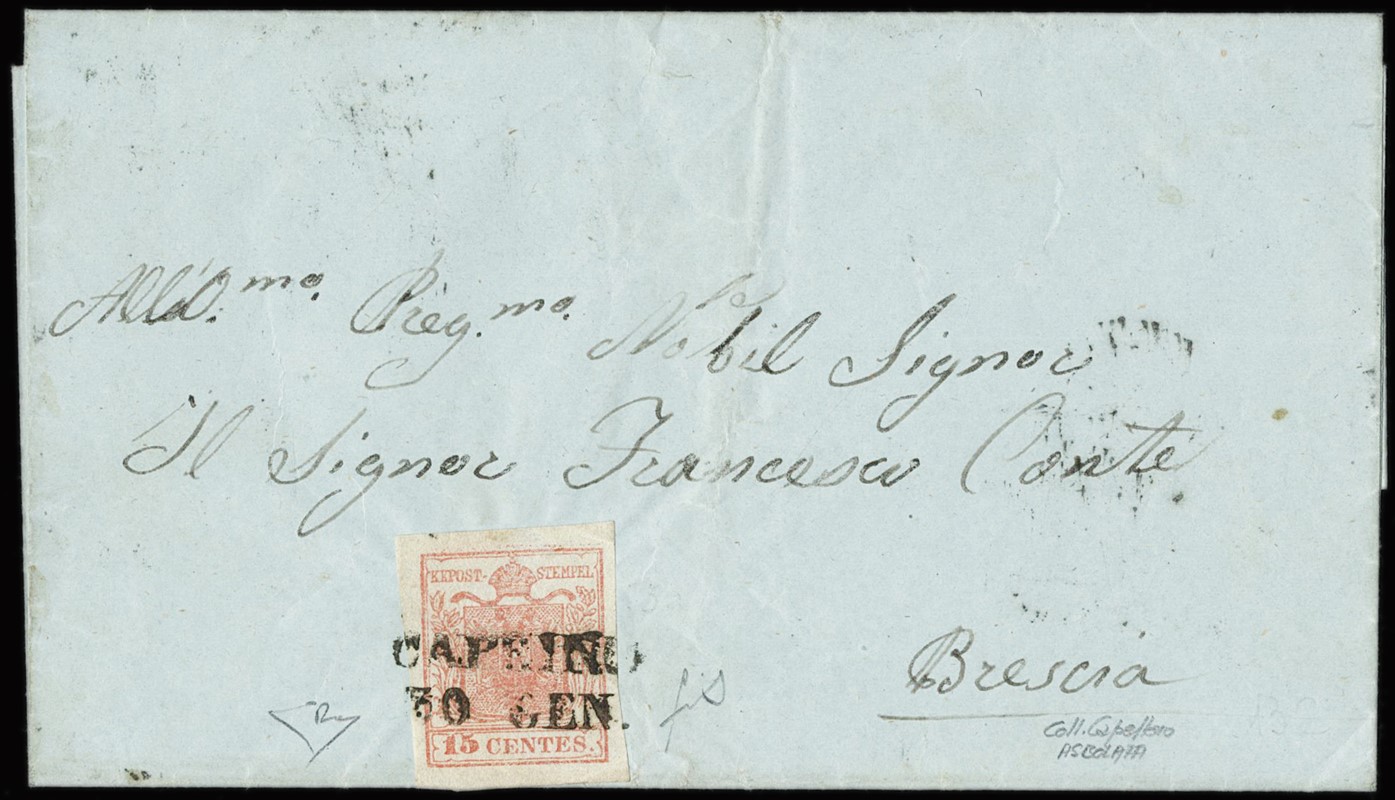 All'Ill.mo Preg.mo Nobil Signor
Il Signor Francesco Conte
KKPOST-STEMPEL
CAPRINO
30 GEN.
15 CENTES.
Brescia
Coll. Capellaro